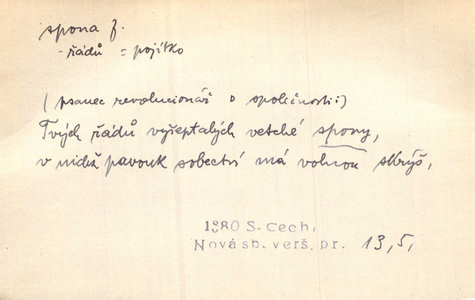 spona f.
- řádů = pojítko
(psanec revolucionář o společnosti:)
Tvých řádů vyšeptalých vetché spony,
v nichž pavouk sobectví má volnou skrýš,
1880 S. Čech,
Nová sb. verš. pr. 13,5,